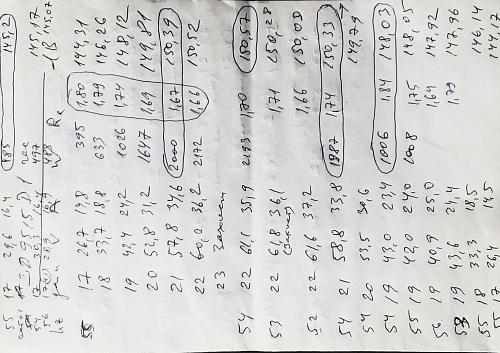 55 17 29,6 16,4 485 145,2
54 17 30,3 16,4 497 145,17
56 17 28,9 488 145,07
R Rк -1В
55 17 26,7 14,8 395 1,80 144,31
18 33,7 18,8 633 1,79 146,26
19 42,4 24,2 1026 1,74 148,12
20 52,8 31,2 1647 1,69 149,81
21 57,8 34,6 2000 1,67 150,39
22 60,0 36,2 2172 1,66 150,52
23
54 22 61,1 35,9 2193 1,70 150,57
53 22 61,8 36,1 1,71 150,28
52 22 61,6 37,2 1,66 150,00
54 21 58,8 33,8 1987 1,74 150,33
54 20 53,5 30,6 149,79
54 19 43,0 23,4 1006 1,84 148,03
55 19 42,0 24,0 1008 1,75 148,05
56 19 40,9 25,0 1,64 147,92
53 19 43,6 24,4 1,79 147,96
55 18 33,3 18,5 146,14
55 17 26,4 14,5